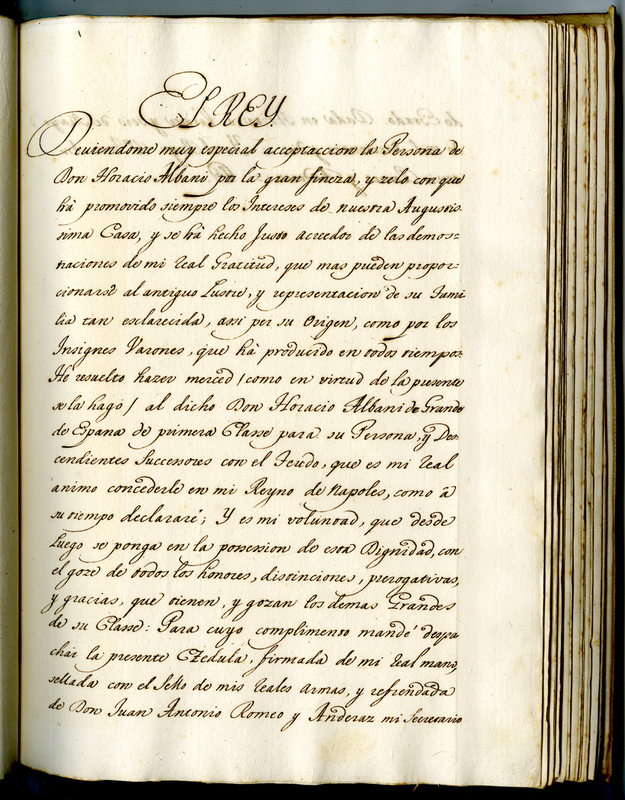 EL REY.
Deviendome muy especial acceptaccion la Persona de
Don Horacio Albani por la gran fineza, y zelo con que
há promovido siempre los Intereses de nuestra Augustis-
sima Casa, y se há hecho Justo acreedor de las demos-
traciones de mi real Gratitud, que mas pueden propor-
cionarse al antiguo Lustre, y representacion de su Fami-
lia tan esclarecida, assi por su Origen, como por los
Insignes Varones, que há producido en todos tiempos:
He resuelto hazer merced / como en virtud de la presente
se la hago / al dicho Don Horacio Albani de Grande
de Espana de primera Classe para su Persona, y Des-
cendientes Successores con el Feudo, que es mi real
animo concederle en mi Reyno de Napoles, como â
su tiempo declararé; Y es mi voluntad, que desde
Luego se ponga en la possession de esta Dignidad, con
el goze de todos los honores, distinciones, prerogativas,
y gracias, que tienen, y gozan los demas Grandes
de su Classe: Para cuyo complimento mandé despa
char la presente Czedula, firmada de mi real mano,
sellada con el Sello de mis reales armas, y refrendada
de Don Juan Antonio Romeo y Anderaz mi Secretario